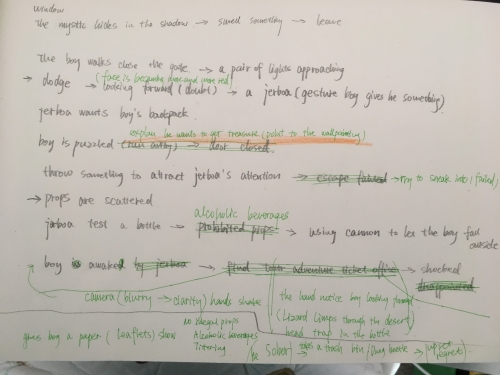 window
The mystic hides in the shadow → smell something → leave
The boy walks close the gate → a pair of lights approaching
(face is becoming and more red)
→ dodge → looking forward (doubt) → a jerboa (gesture boy give he something)
jerboa wants boy's backpack.
explain he wants to get treasure (point to the wallpainting)
boy is puzzled (run away) → door closed.
throw something to attract jerboa's attention → escape failed → try to sneak into (failed)
→ props are scattered
alcoholic beverages
jerboa test a bottle → prohibited props → using cannon to let the boy fall outside
boy is awaked by jerboa → find adventure ticket office → shocked
disappointed
camera (blurry → clarity) hands shake
the hand notice boy looking forward
(Lizard limps through the desert)
head trap in the bottle
gives boy a paper (leaflets) show
No illegal props
Alcoholic beverages
Tittering
(be sober) → taps a trash btn / Dang → (regrets)